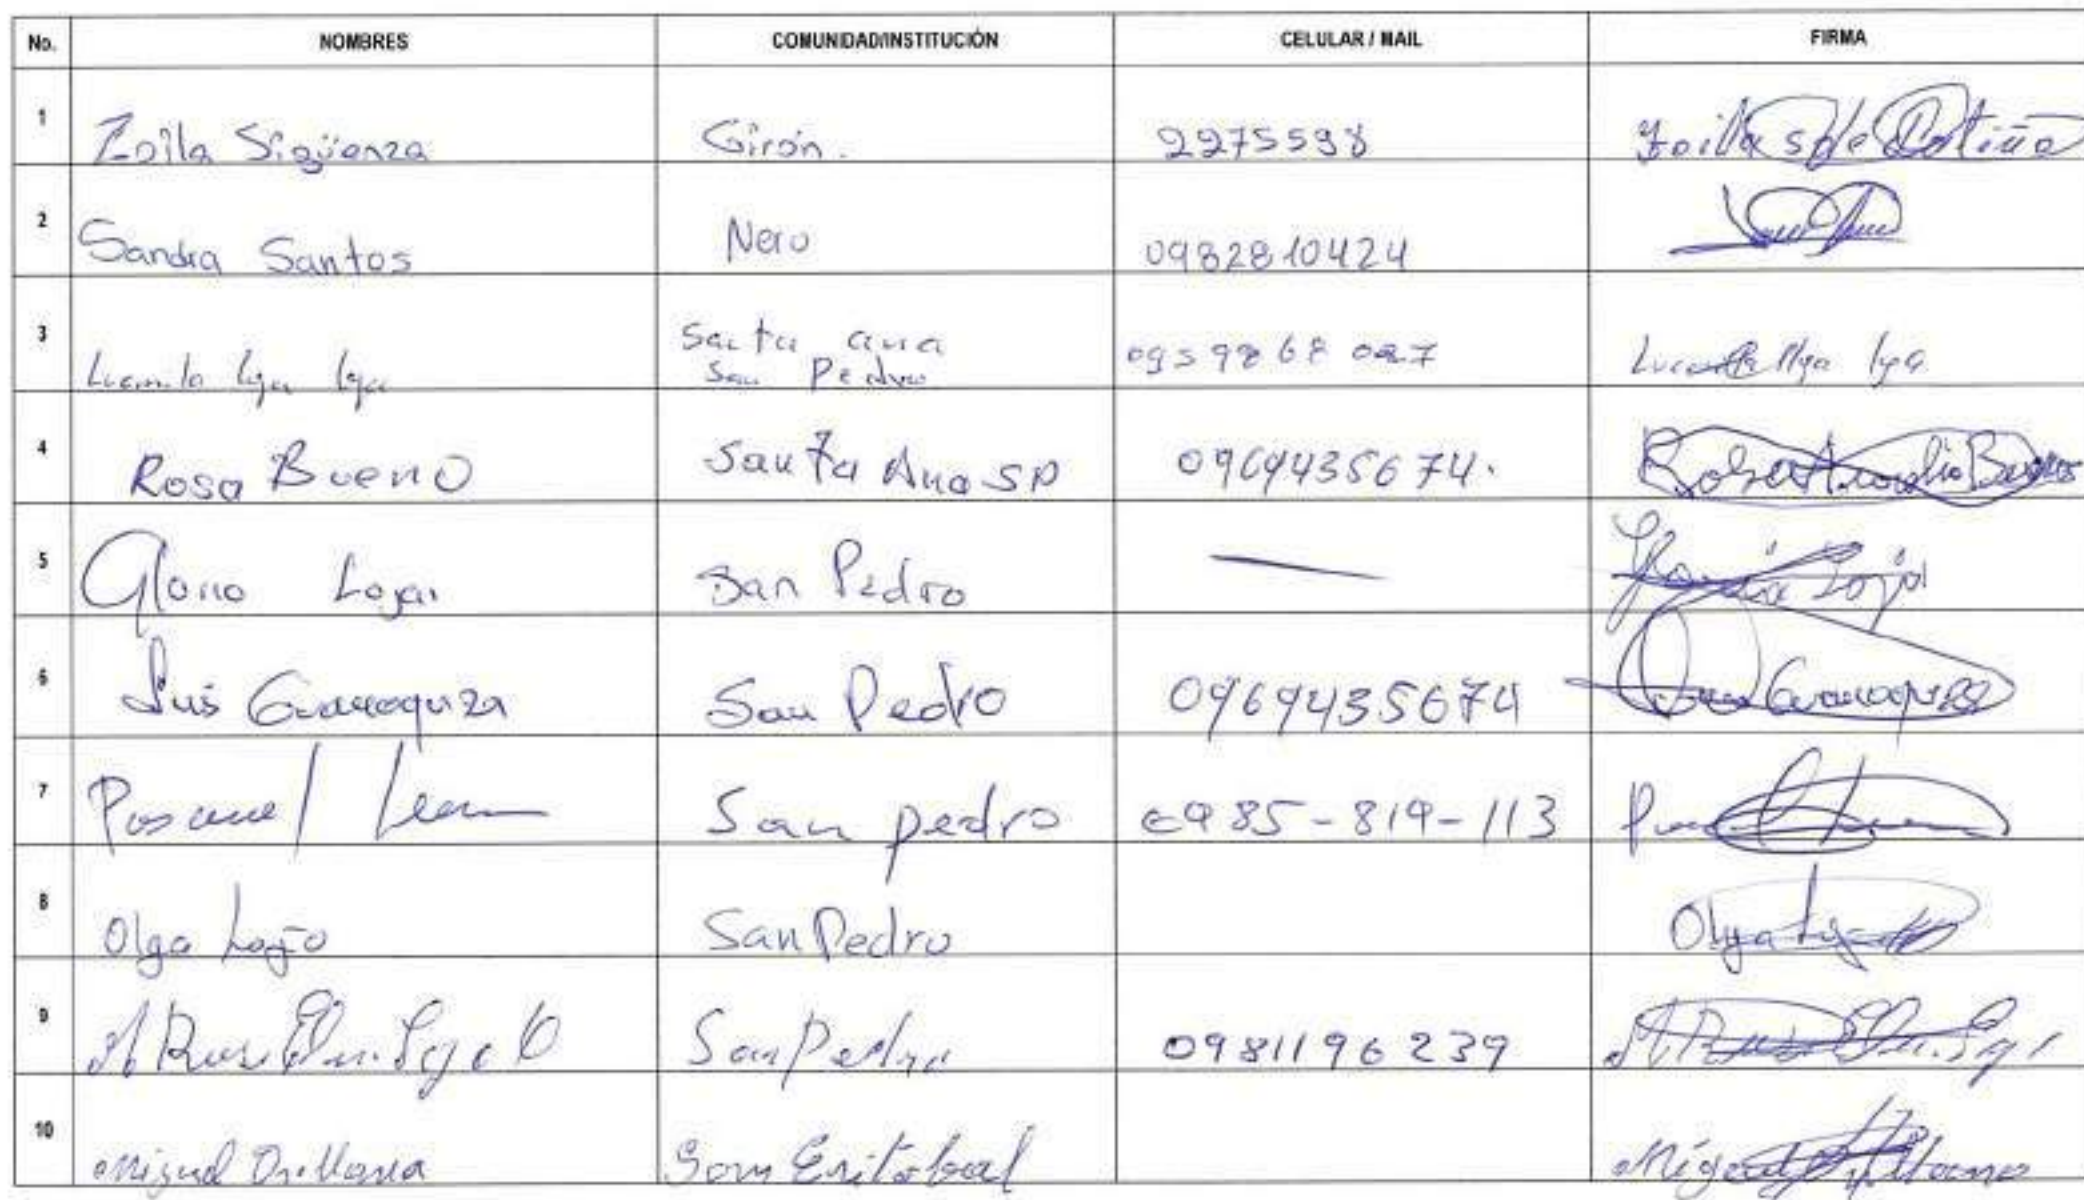 No. NOMBRES COMUNIDAD/INSTITUCIÓN CELULAR / MAIL FIRMA
1 Zoila Sigüenza Girón. 2275598 Zoila S de Patiño
2 Sandra Santos Nero 0982810424
3 Santa ana
San Pedro
4 Rosa Bueno Santa Ana SP 0969435674. Bueno
5 Gloria Loja San Pedro — Gloria Loja
6 Luis Guaraquiza San Pedro 0969435674 Guaraquiza
7 San pedro 0985-819-113
8 Olga Loja San Pedro Olga Loja
9 San Pedro 0981196239
10 Miguel Orellana San Cristobal Miguel Orellana